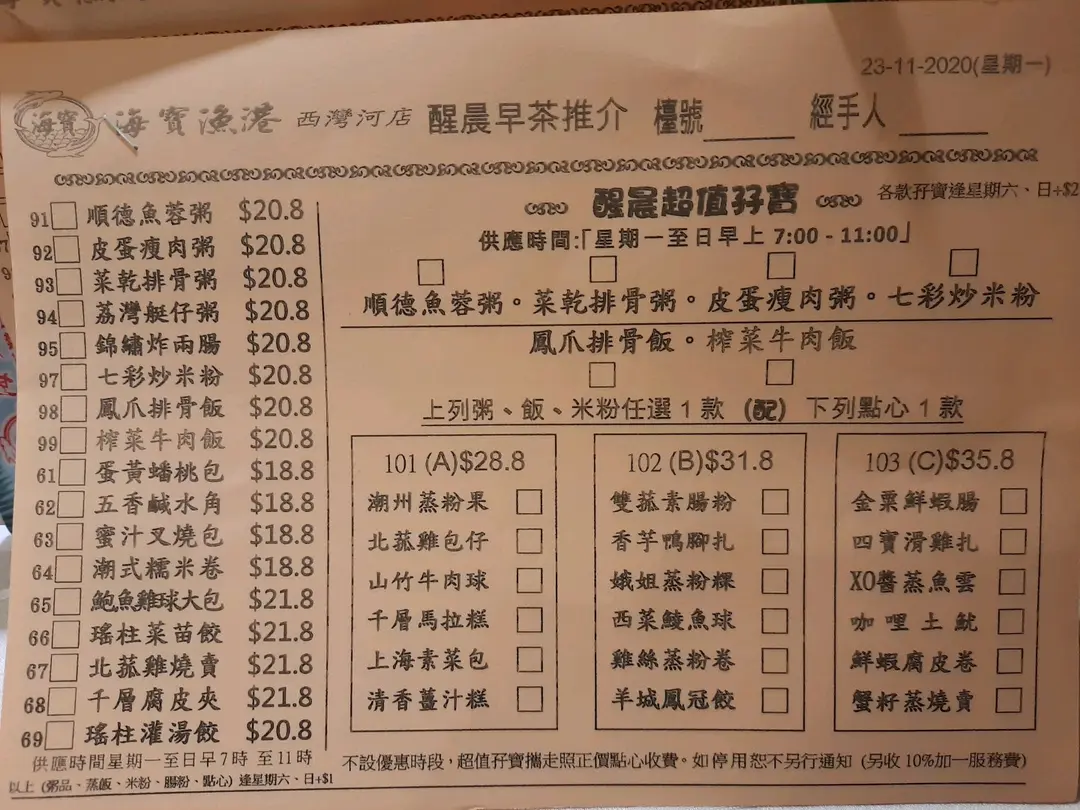 23-11-2020(星期一)
海寶 海寶漁港 西灣河店 醒晨早茶推介 檯號 經手人
91 順德魚蓉粥 $20.8
92 皮蛋瘦肉粥 $20.8
93 菜乾排骨粥 $20.8
94 荔灣艇仔粥 $20.8
95 錦繡炸兩腸 $20.8
97 七彩炒米粉 $20.8
98 鳳爪排骨飯 $20.8
99 榨菜牛肉飯 $20.8
61 蛋黃蟠桃包 $18.8
62 五香鹹水角 $18.8
63 蜜汁叉燒包 $18.8
64 潮式糯米卷 $18.8
65 鮑魚雞球大包 $21.8
66 瑤柱菜苗餃 $21.8
67 北菰雞燒賣 $21.8
68 千層腐皮夾 $21.8
69 瑤柱灌湯餃 $20.8
供應時間星期一至日早7時 至11時
以上 (粥品、蒸飯、米粉、腸粉、點心) 逢星期六、日+$1
醒晨超值孖寶 各款孖寶逢星期六、日+$2
供應時間:「星期一至日早上 7:00 - 11:00」
順德魚蓉粥。菜乾排骨粥。皮蛋瘦肉粥。七彩炒米粉
鳳爪排骨飯。榨菜牛肉飯
上列粥、飯、米粉任選1款 (配) 下列點心1款
101 (A)$28.8
潮州蒸粉果
北菰雞包仔
山竹牛肉球
千層馬拉糕
上海素菜包
清香薑汁糕
102 (B)$31.8
雙菰素腸粉
香芋鴨腳扎
娥姐蒸粉粿
西菜鯪魚球
雞絲蒸粉卷
羊城鳳冠餃
103 (C)$35.8
金粟鮮蝦腸
四寶滑雞扎
XO醬蒸魚雲
咖哩土魷
鮮蝦腐皮卷
蟹籽蒸燒賣
不設優惠時段，超值孖寶攜走照正價點心收費。如停用恕不另行通知 (另收10%加一服務費)